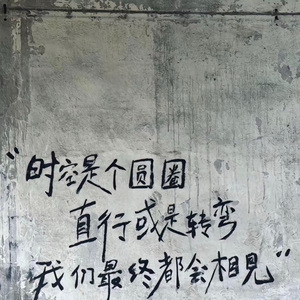 "时空是个圆圈
直行或是转弯
我们最终都会相見"